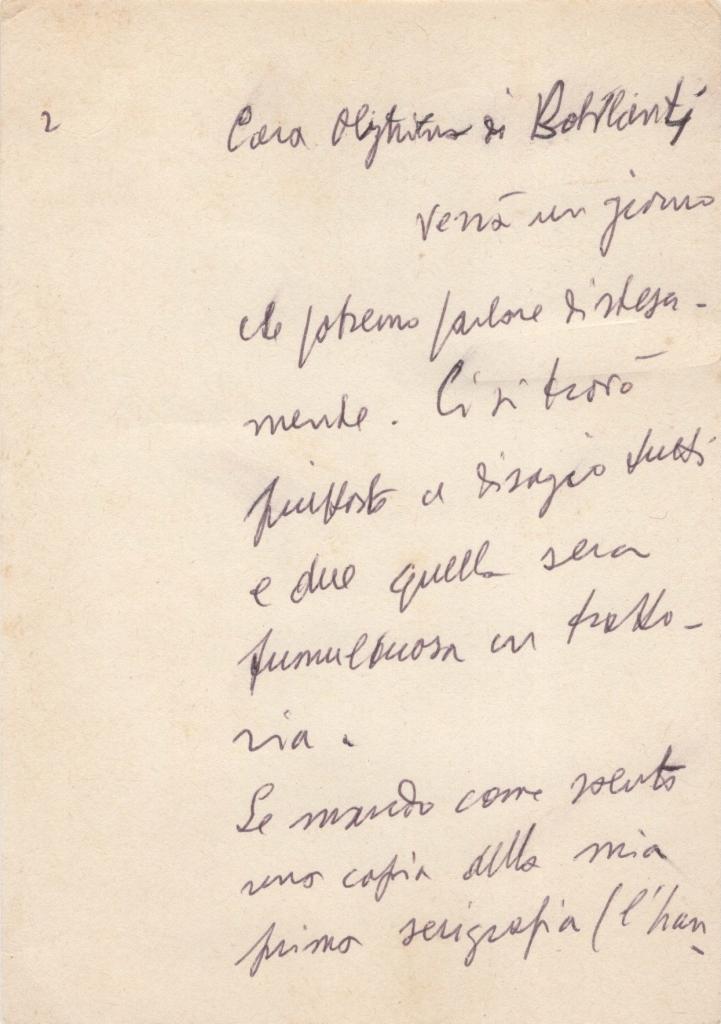 2
Cara di
Verrà un giorno
che potremo parlare distesa-
mente. Ci si trovò
piuttosto a disagio tutti
e due quella sera
tumultuosa in tratto-
ria.
Le mando come saluto
una copia della mia
prima serigrafia (l'han-